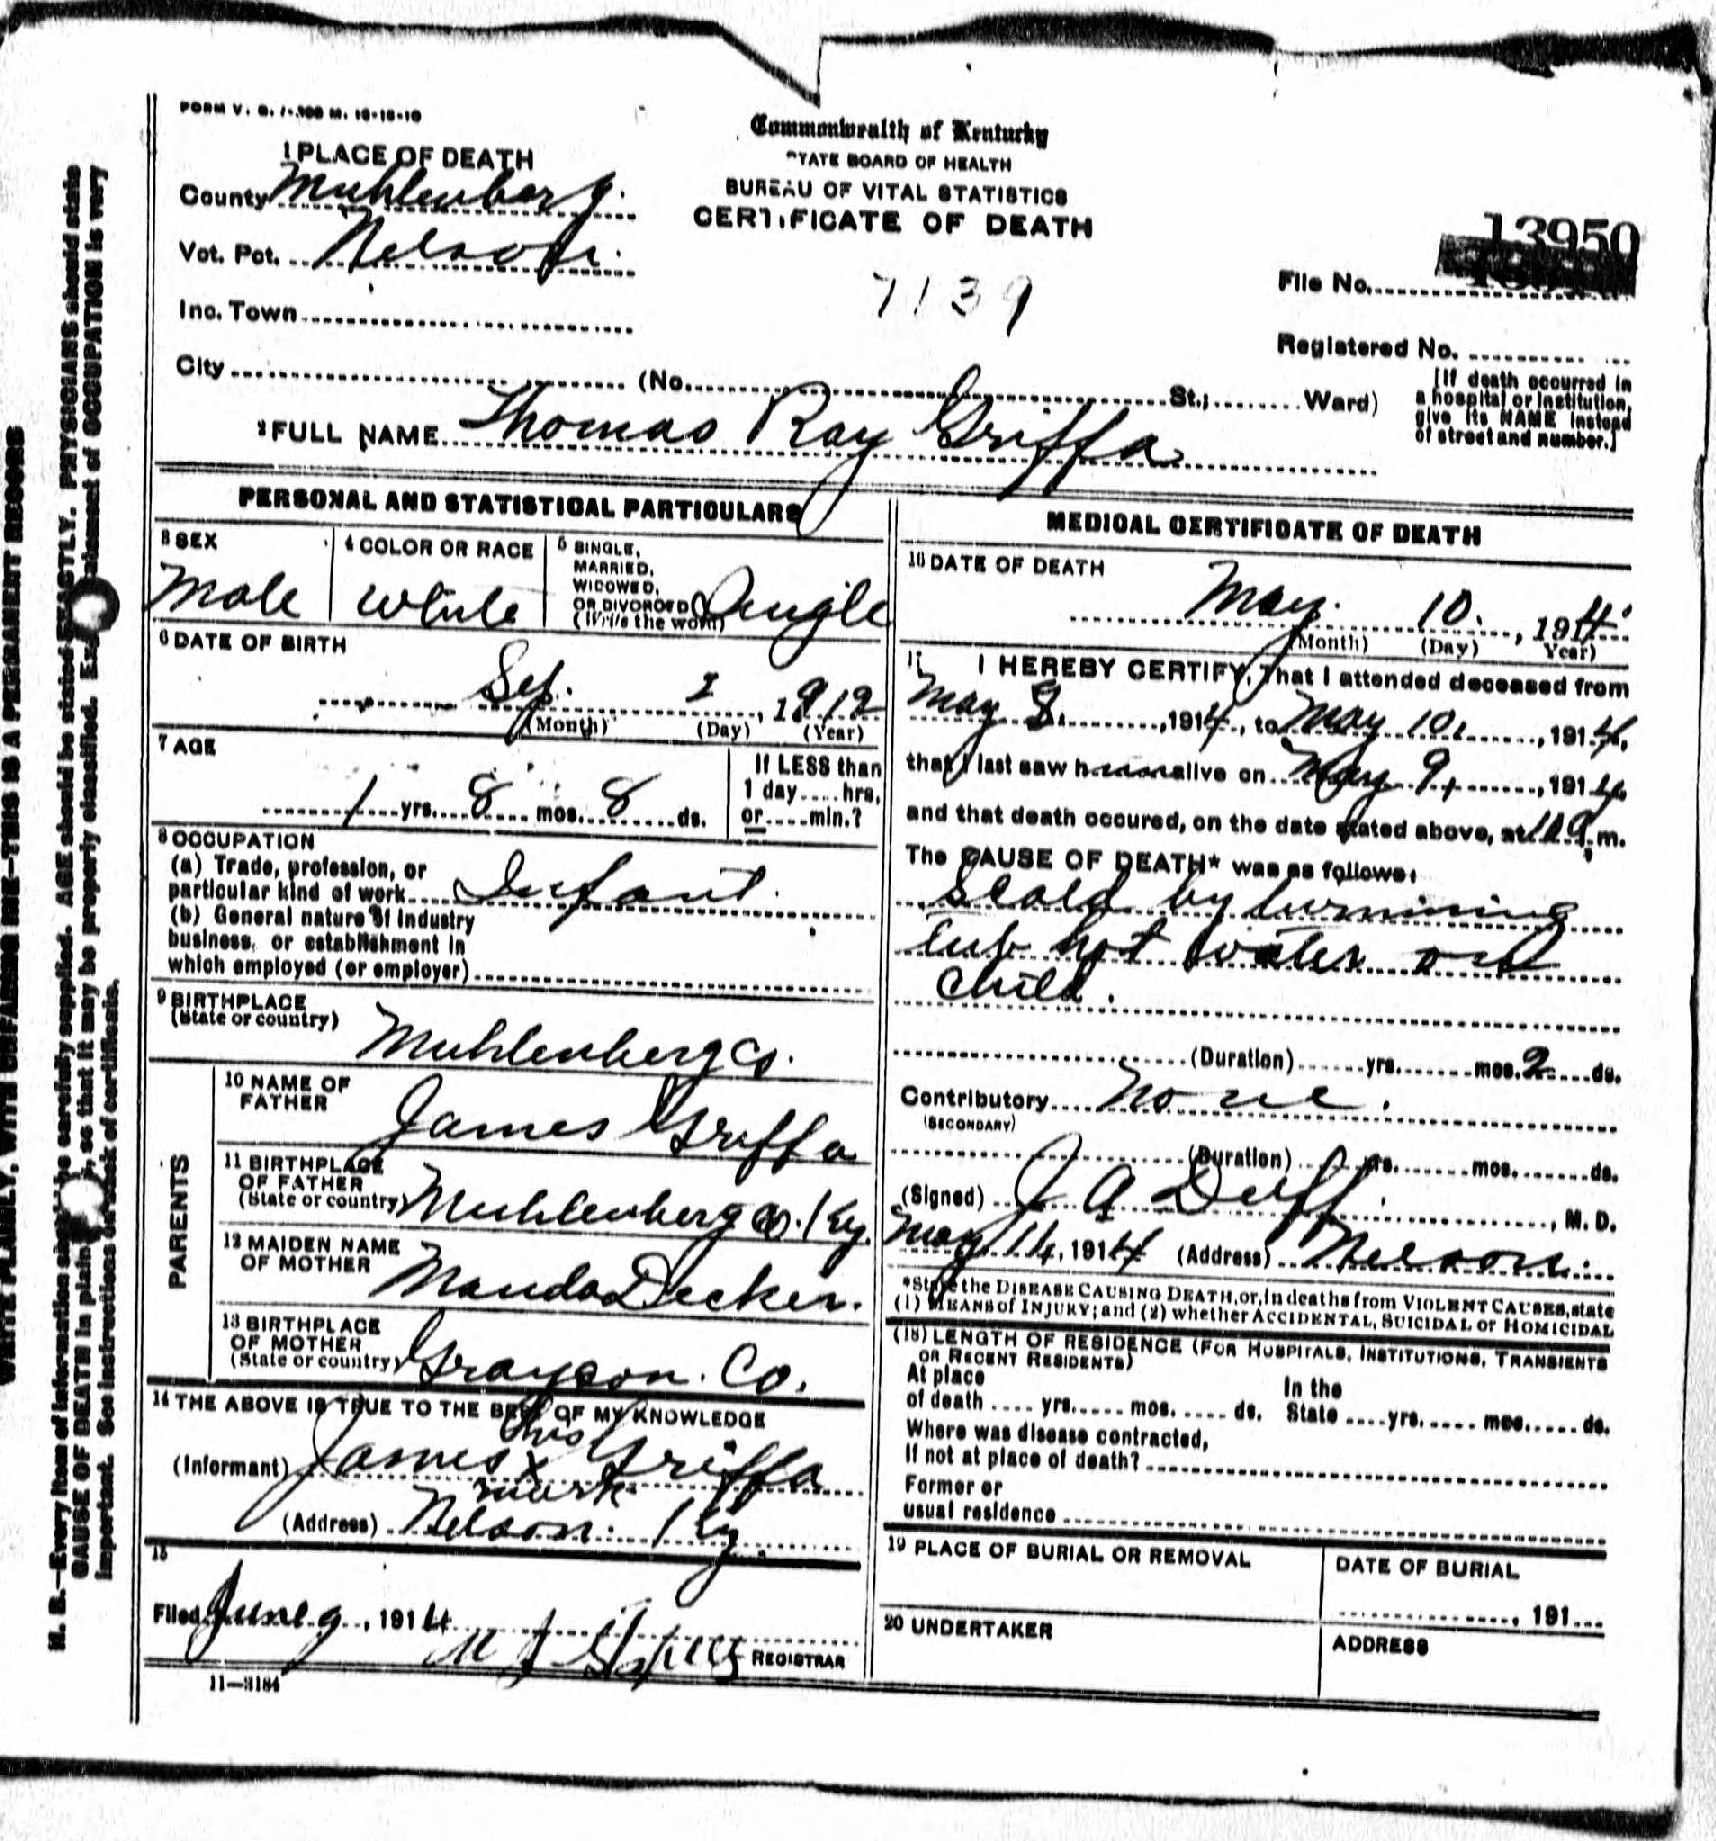 FORM V. S. 1-300 M. 10-18-10
Commonwealth of Kentucky
STATE BOARD OF HEALTH
BUREAU OF VITAL STATISTICS
CERTIFICATE OF DEATH
1 PLACE OF DEATH
County Muhlenberg.
Vot. Pct. Nelson.
Inc. Town
City (No. St.; Ward)
7139
13950
File No.
Registered No.
[If death occurred in
a hospital or institution,
give its NAME instead
of street and number.]
2 FULL NAME Thomas Ray Griffa
PERSONAL AND STATISTICAL PARTICULARS
3 SEX
Male
4 COLOR OR RACE
White
5 SINGLE,
MARRIED,
WIDOWED,
OR DIVORCED
(Write the word)
Single
6 DATE OF BIRTH
Sep. 2, 1912
(Month) (Day) (Year)
7 AGE
1 yrs. 8 mos. 8 ds.
If LESS than
1 day.... hrs.
or.... min.?
8 OCCUPATION
(a) Trade, profession, or
particular kind of work Infant.
(b) General nature of Industry
business, or establishment in
which employed (or employer)
9 BIRTHPLACE
(State or country)
Muhlenberg Co.
PARENTS
10 NAME OF
FATHER
James Griffa
11 BIRTHPLACE
OF FATHER
(State or country) Muhlenberg Co. Ky.
12 MAIDEN NAME
OF MOTHER
Manda Decker.
13 BIRTHPLACE
OF MOTHER
(State or country) Grayson. Co.
14 THE ABOVE IS TRUE TO THE BEST OF MY KNOWLEDGE
his
(Informant) James x Griffa
mark
(Address) Nelson. Ky.
15
Filed June 9, 1914
REGISTRAR
11—3184
MEDICAL CERTIFICATE OF DEATH
16 DATE OF DEATH
May. 10., 1914.
(Month) (Day) Year)
17 I HEREBY CERTIFY, That I attended deceased from
May 8, 1914, to May 10, 1914,
that I last saw h alive on May 9, 1914,
and that death occured, on the date stated above, at m.
The CAUSE OF DEATH* was as follows:
Scald by turnining
tub hot water on
child.
(Duration) yrs. mos. 2 ds.
Contributory None.
(SECONDARY)
(Duration) yrs. mos. ds.
(Signed) J A Duff., M. D.
May 14, 1914 (Address) Nelson.
*State the DISEASE CAUSING DEATH, or, in deaths from VIOLENT CAUSES, state
(1) MEANS of INJURY; and (2) whether ACCIDENTAL, SUICIDAL or HOMICIDAL
(18) LENGTH OF RESIDENCE (FOR HOSPITALS, INSTITUTIONS, TRANSIENTS
OR RECENT RESIDENTS)
At place
of death .... yrs. .... mos. .... ds.
In the
State .... yrs. .... mos. .... ds.
Where was disease contracted,
If not at place of death?
Former or
usual residence
19 PLACE OF BURIAL OR REMOVAL
DATE OF BURIAL
, 191...
20 UNDERTAKER
ADDRESS
WRITE PLAINLY, WITH UNFADING INK—THIS IS A PERMANENT RECORD
N. B.—Every item of information should be carefully supplied. AGE should be stated EXACTLY. PHYSICIANS should state
CAUSE OF DEATH in plain, so that it may be properly classified. Exact statement of OCCUPATION is very
important. See instructions on back of certificate.